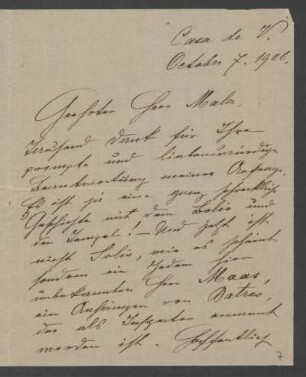 Casa de V.
October 7. 1906.
Geehrter Herr Maler,
Tausend Dank für Ihre
prompte und liebenswürdige
Beantwortung meiner Anfrage.
Es ist ja eine ganz schreckliche
Geschichte mit dem Solis und
den Tempel! - Und jetzt ist
nicht Solis, wie es scheint
sondern ein Jedem hier
unbekannter Herr Maas,
ein Anhänger von Batres,
der als Inspector ernannt
worden ist. Hoffentlich
7